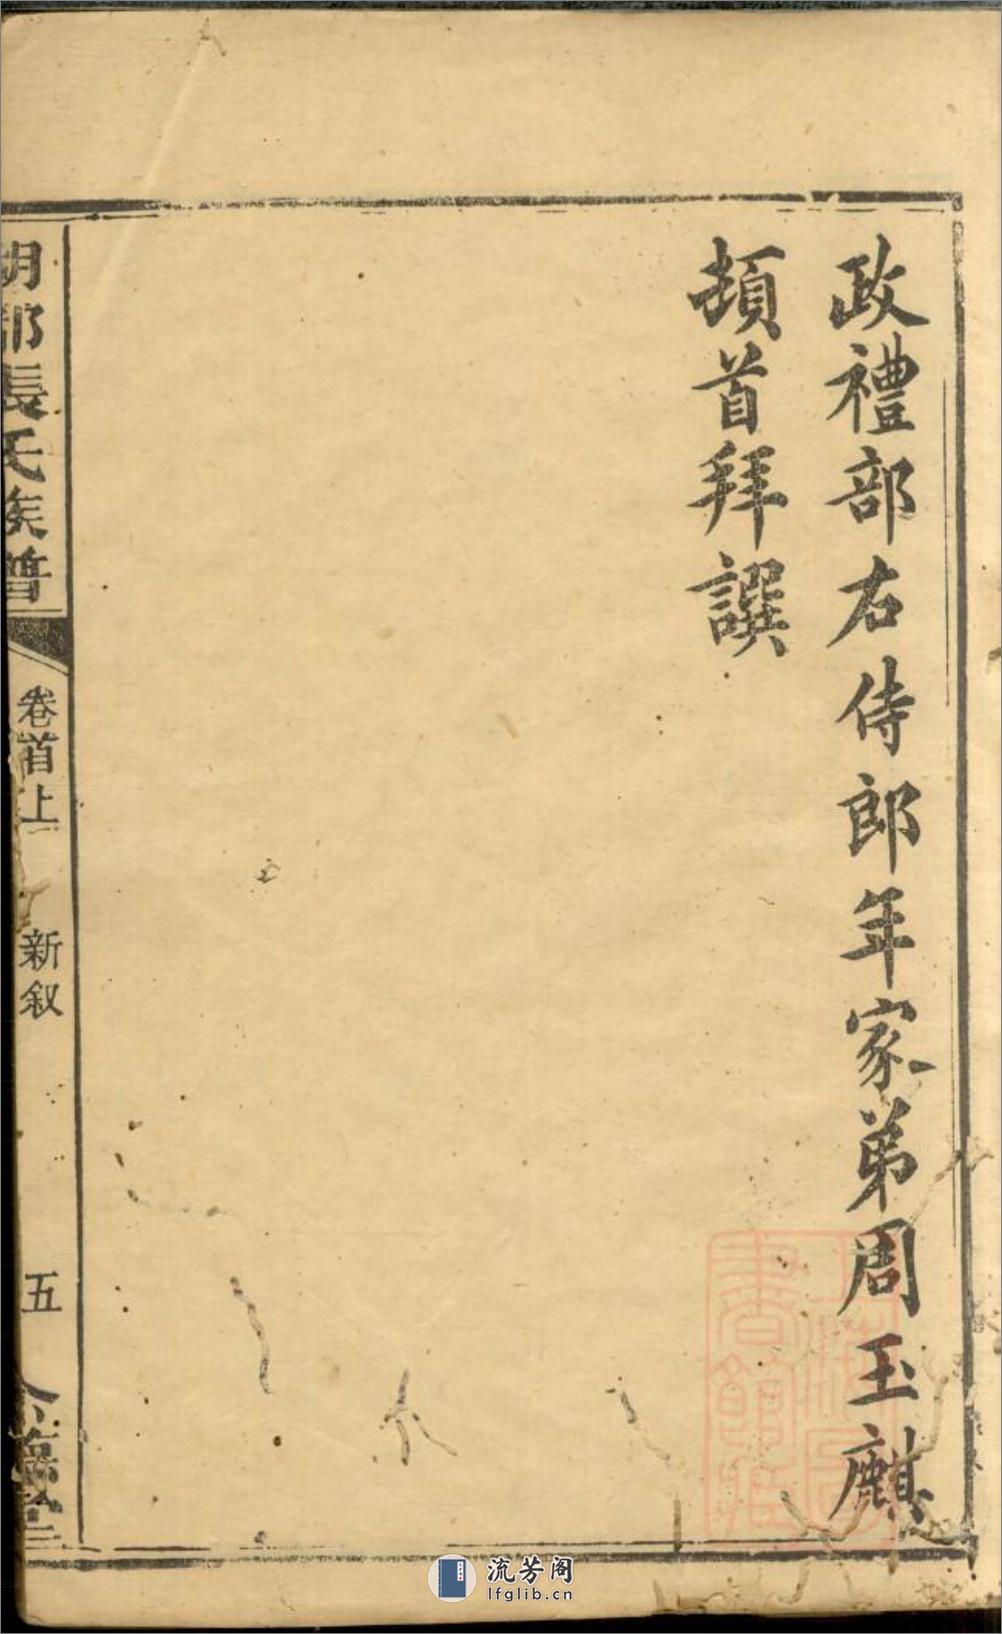 政禮部右侍郎年家弟周玉麒
頓首拜譔
張氏族譜
卷首上
新叙
五
流芳阁
lfglib.cn